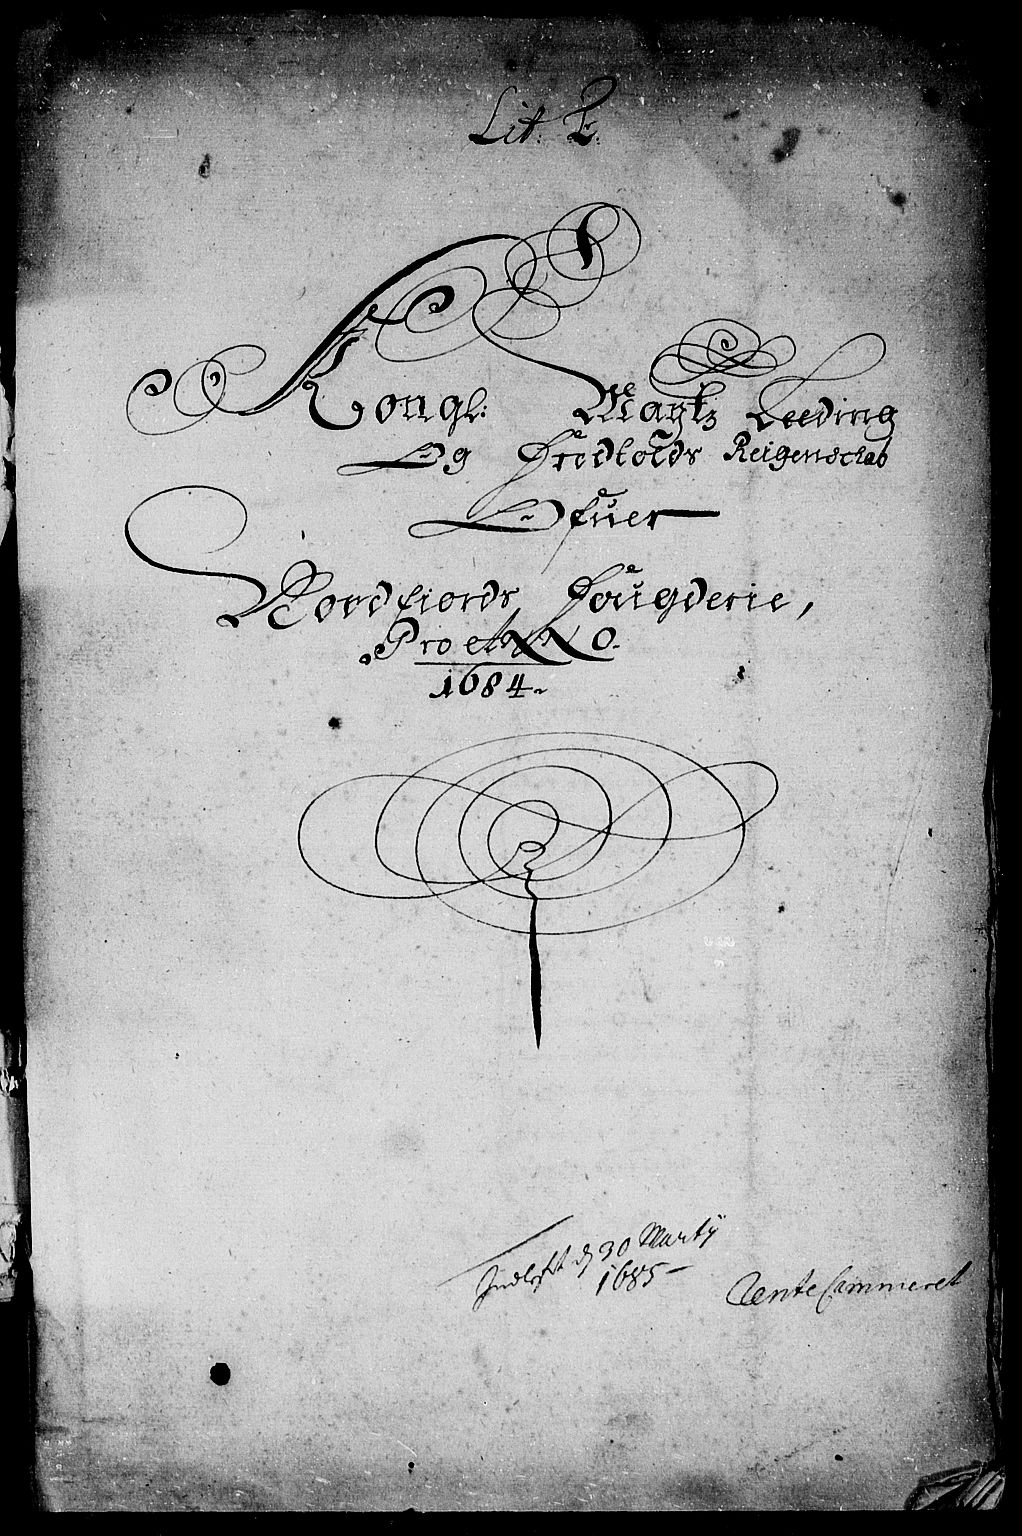 Lit: E:
Kongl: Maÿtz Leeding
Og Fredtolds Reigenschab
Ofuer
Nordfiords Fougderie,
Pro Anno.
1684.
Indlest d 30 Martij
1685
Rente Cammeret